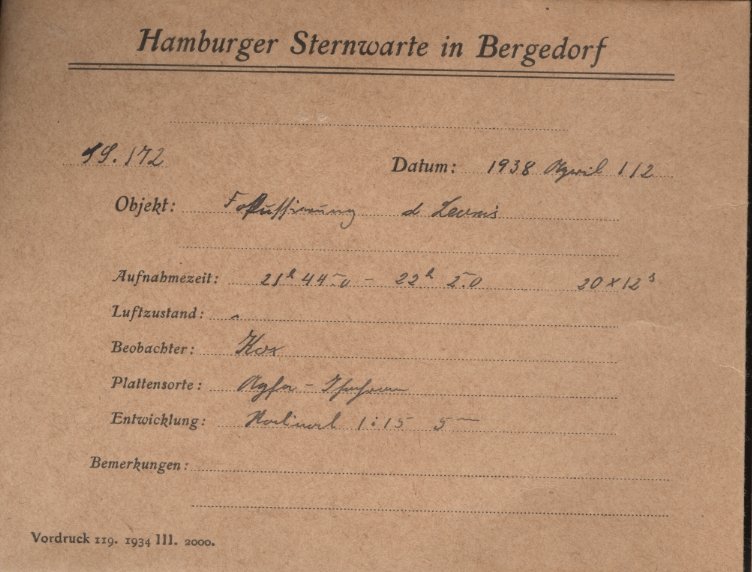 Hamburger Sternwarte in Bergedorf
SS. 172
Datum: 1938 April 1/2
Objekt: Fokussierung α Leonis
Aufnahmezeit: 21h 44.0 - 22h 5.0 20 x 12s
Luftzustand:
Beobachter: Kox
Plattensorte: Agfa -
Entwicklung: Rodinal 1:15 5m
Bemerkungen:
Vordruck 119. 1934 III. 2000.